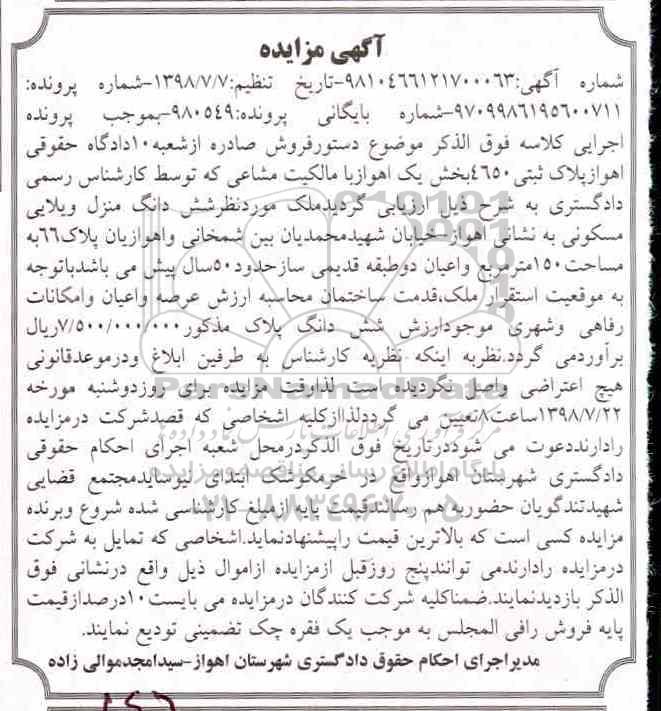 آگهی مزایده
شماره آگهی:۹۸۱۰٤٦٦۱۲۱۷۰۰۰٦۳-تاریخ تنظیم:۱۳۹۸/۷/۷-شماره پرونده:
۹۷۰۹۹۸٦۱۹٥٦۰۰۷۱۱-شماره بایگانی پرونده:۹۸۰٥٤۹-بموجب پرونده
اجرایی کلاسه فوق الذکر موضوع دستورفروش صادره ازشعبه۱۰دادگاه حقوقی
اهوازپلاک ثبتی٤٦٥۰بخش یک اهوازبا مالکیت مشاعی که توسط کارشناس رسمی
دادگستری به شرح ذیل ارزیابی گردیدملک موردنظرشش دانگ منزل ویلایی
مسکونی به نشانی اهواز-خیابان شهیدمحمدیان بین شمخانی واهوازیان پلاک٦٦به
مساحت۱٥۰مترمربع واعیان دوطبقه قدیمی سازحدود٥۰سال پیش می باشدباتوجه
به موقعیت استقرار ملک،قدمت ساختمان محاسبه ارزش عرصه واعیان وامکانات
رفاهی وشهری موجودارزش شش دانگ پلاک مذکور۷/٥۰۰/۰۰۰/۰۰۰ریال
برآوردمی گردد.نظربه اینکه نظریه کارشناس به طرفین ابلاغ ودرموعدقانونی
هیچ اعتراضی واصل نگردیده است لذاوقت مزایده برای روزدوشنبه مورخه
۱۳۹۸/۷/۲۲ساعت۸تعیین می گرددلذاازکلیه اشخاصی که قصدشرکت درمزایده
رادارنددعوت می شوددرتاریخ فوق الذکردرمحل شعبه اجرای احکام حقوقی
دادگستری شهرستان اهوازواقع در خرمکوشک ابتدای لیوسایدمجتمع قضایی
شهیدتندگویان حضوربه هم رسانندقیمت پایه ازمبلغ کارشناسی شده شروع وبرنده
مزایده کسی است که بالاترین قیمت راپیشنهادنماید.اشخاصی که تمایل به شرکت
درمزایده رادارندمی توانندپنج روزقبل ازمزایده ازاموال ذیل واقع درنشانی فوق
الذکر بازدیدنمایند.ضمناکلیه شرکت کنندگان درمزایده می بایست۱۰درصدازقیمت
پایه فروش رافی المجلس به موجب یک فقره چک تضمینی تودیع نمایند.
مدیراجرای احکام حقوق دادگستری شهرستان اهواز-سیدامجدموالی زاده
ParsNamadData
پایگاه اطلاع رسانی مناقصه و مزایده
۰۲۱-۸۸۳۴۹۶۷۰-۵